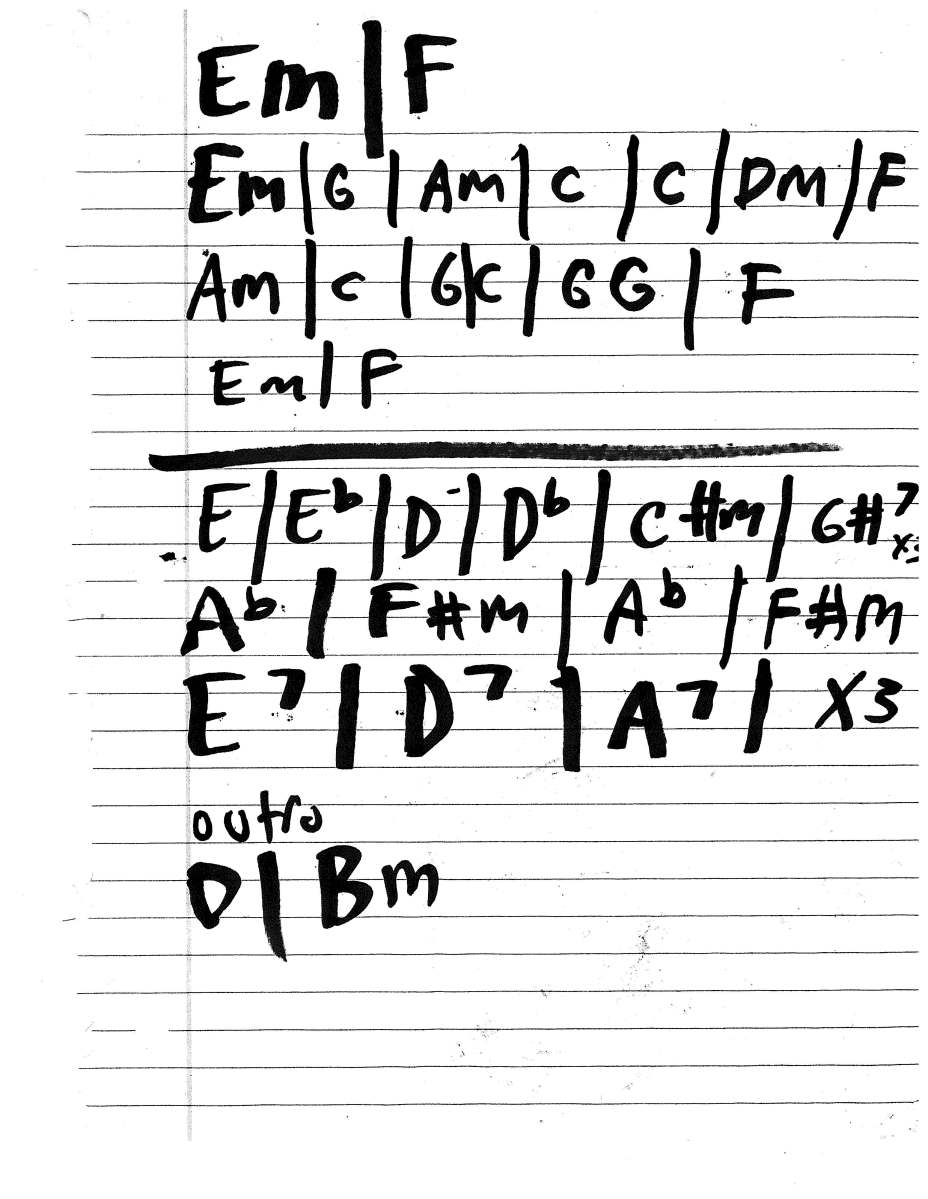 Em | F
Em | G | Am | C | C | Dm | F
Am | C | G | C | G G | F
Em | F
E | Eb | D | Db | C#m | G#7
Ab | F#m | Ab | F#m
E7 | D7 | A7 | X3
outro
D | Bm